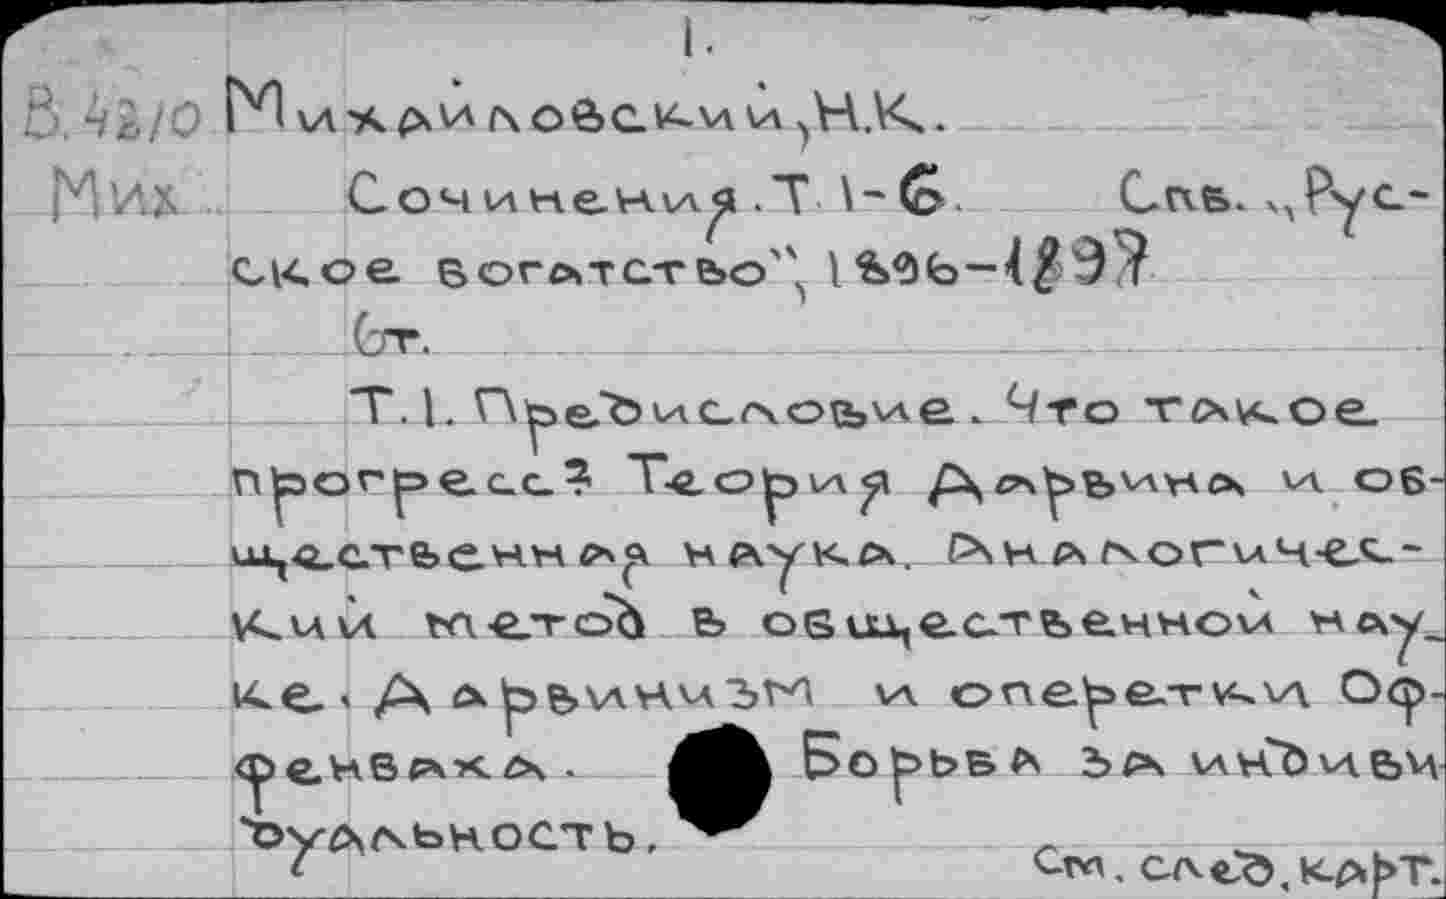 1.
В.42/0 Михайловский, Н.К.
Мих Сочинения. Т 1-6. Спб. „Рус-
ское богатство", 1896-1897
6т.
Т.1. Предисловие. Что такое
прогресс? Теория Дарвина и об-
щественная наука. Аналогичес-
кий метод в общественной нау-
ке. Дарвинизм и оперетки Оф-
фенбаха. Борьба за индиви-
дуальность.
См. след. карт.